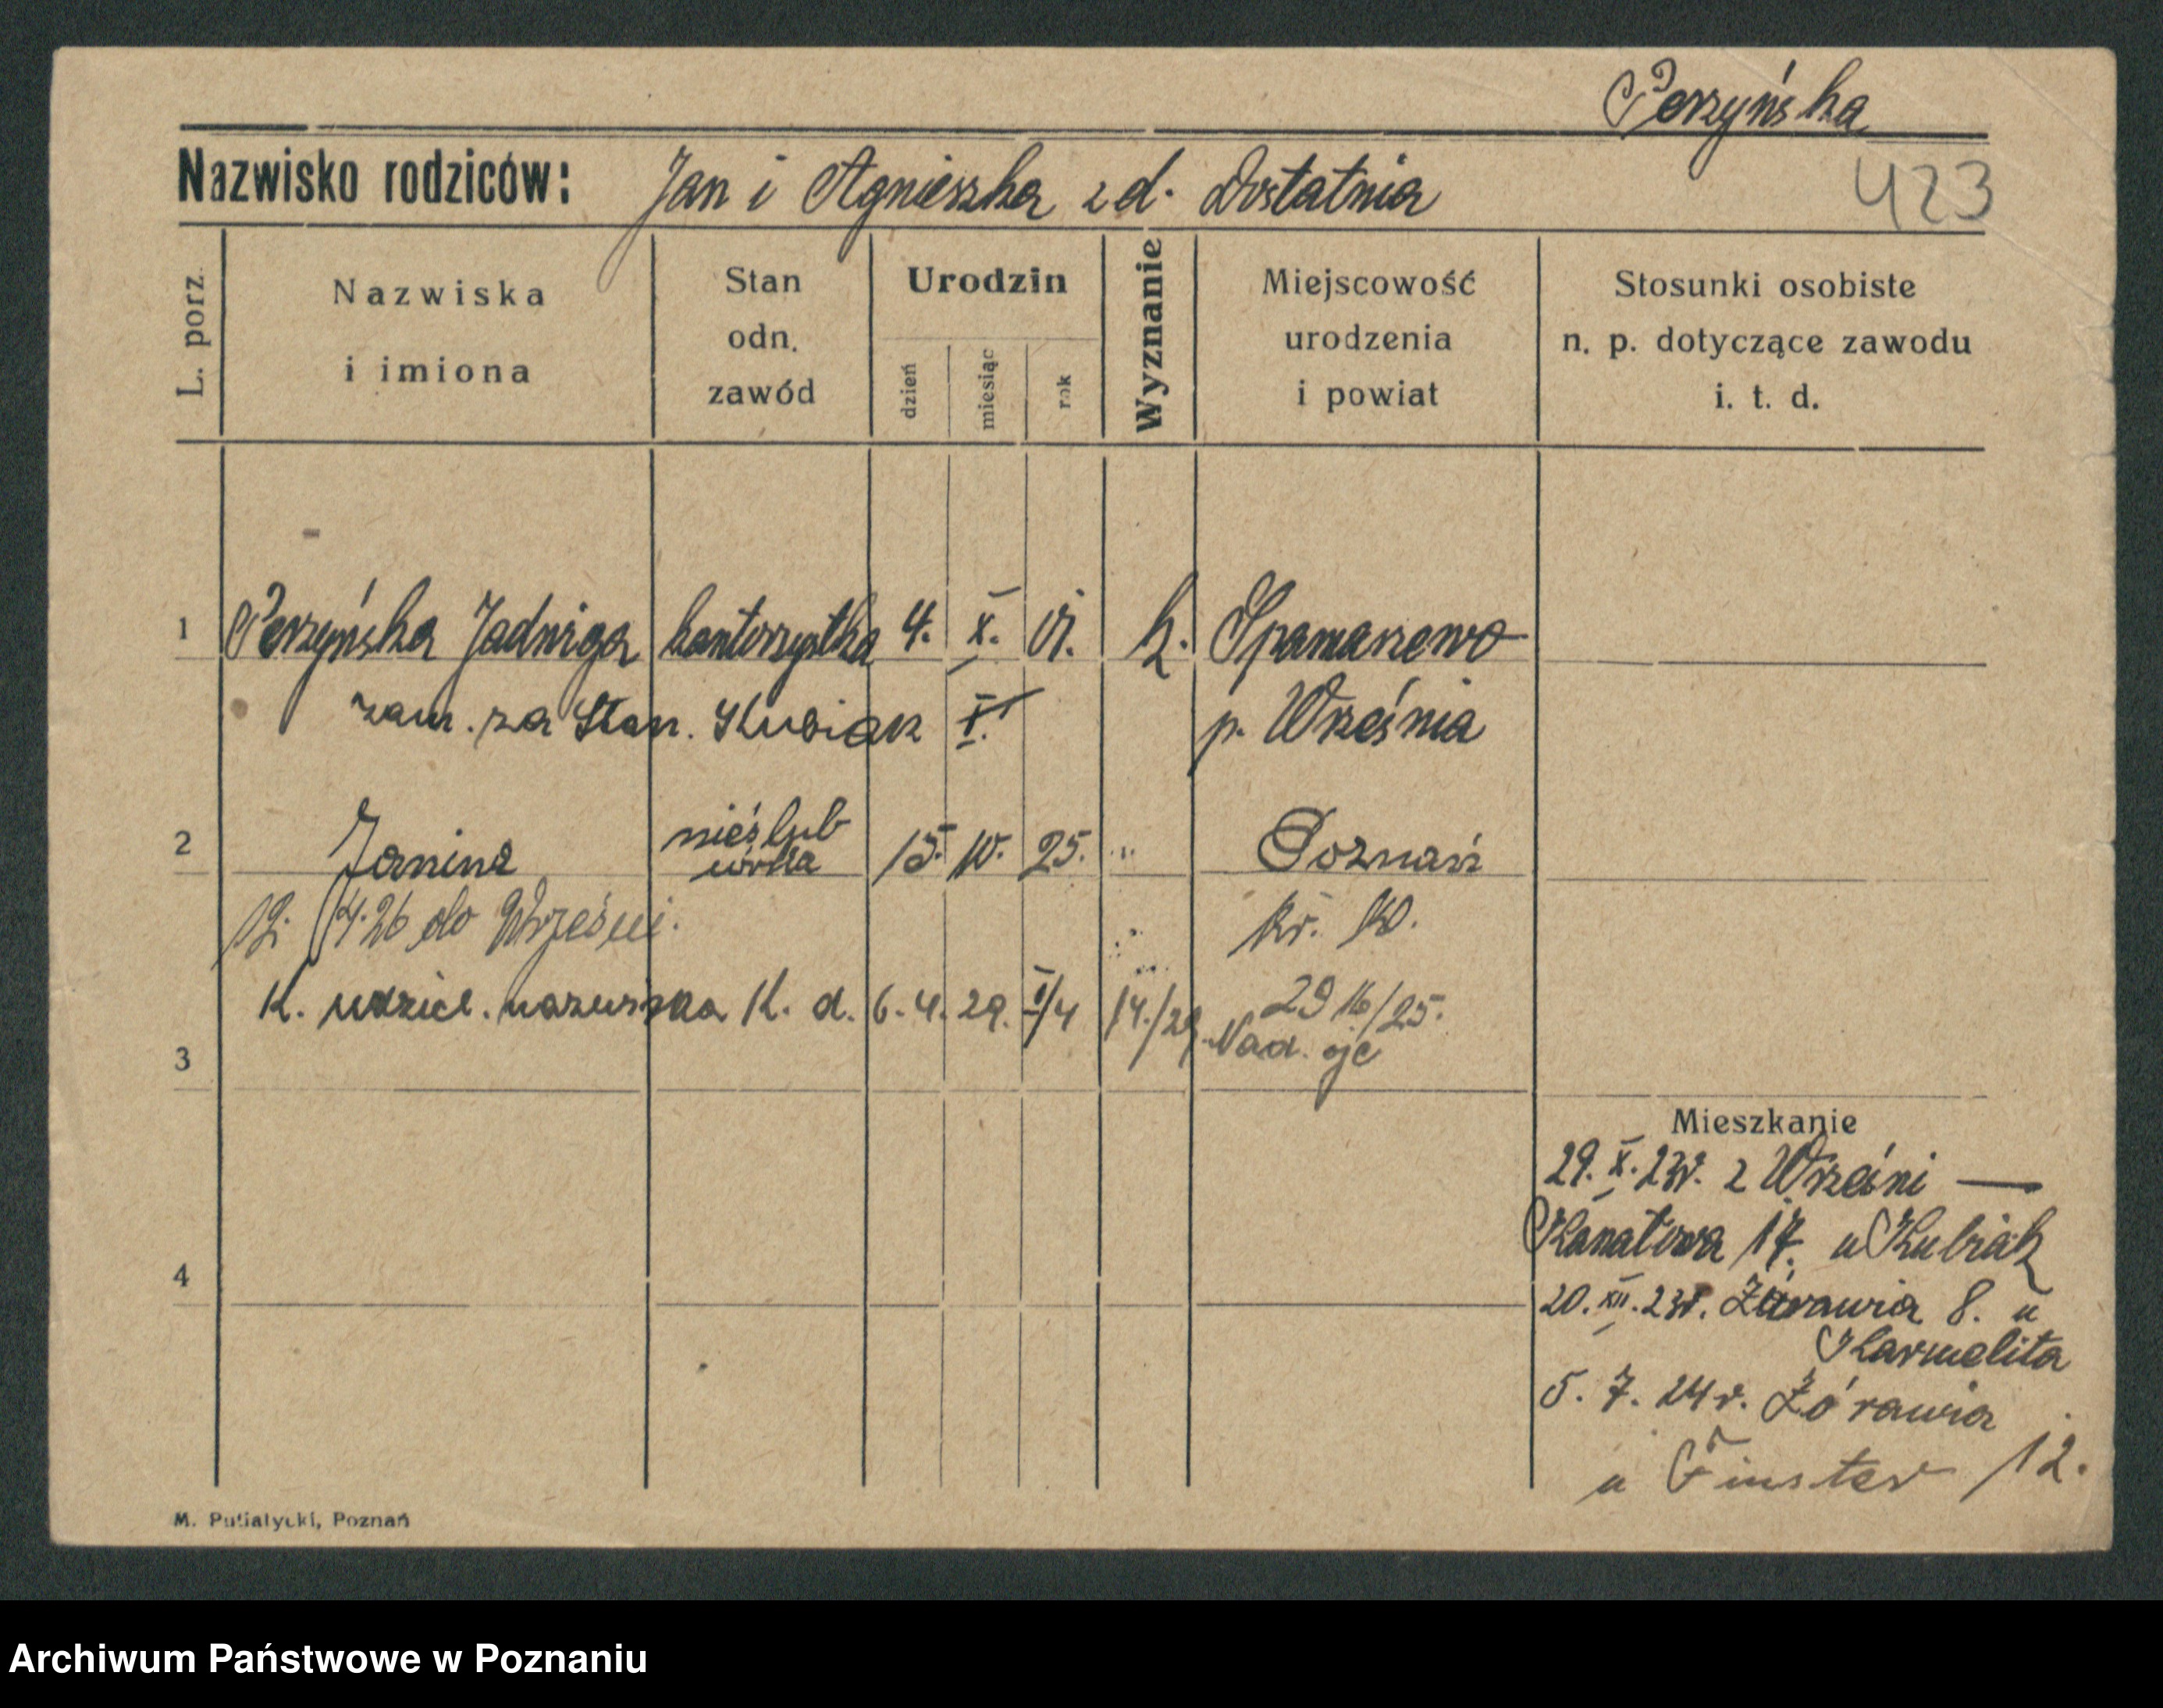 Perzyńska
Nazwisko rodziców: Jan i Agnieszka z d. Dostatnia
423
L. porz.
Nazwiska
i imiona
Stan
odn.
zawód
Urodzin
dzień
miesiąc
rok
Wyznanie
Miejscowość
urodzenia
i powiat
Stosunki osobiste
n. p. dotyczące zawodu
i. t. d.
1 Perzyńska Jadwiga kantorzystka 4. X. 01. k.
zam. za Stan. Kubiak X.
p. Września
2 Janina nieślub córka 15. 10. 25. " Poznań
4.26 do Wrześni.
kr. 10.
K. udziel. nazwiska K. d. 6. 4. 29. I/4 14./29
29 16/25.
Nad. ojc
3
Mieszkanie
29. X. 23r. z Wrześni —
Kanałowa 17. u Kubiak
4
20. XII. 23r. Żórawia 8. u
Karmelita
5. 7. 24 r. Żórawia
u Finster 12.
M. Putiatycki, Poznań
Archiwum Państwowe w Poznaniu